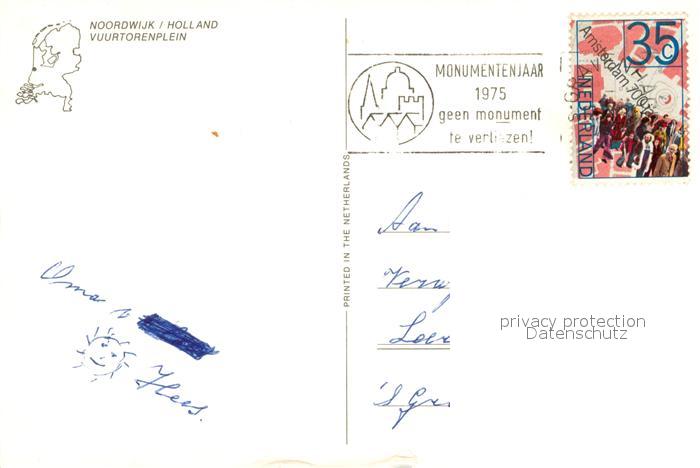 NOORDWIJK / HOLLAND
VUURTORENPLEIN
MONUMENTENJAAR
1975
geen monument
te verliezen!
35c
Amsterdam 700
NEDERLAND
PRINTED IN THE NETHERLANDS
Aan
Oma
Hees.
's Gr
privacy protection
Datenschutz